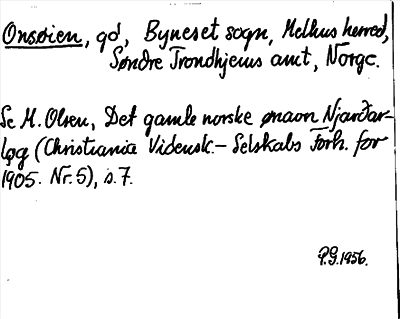 Onsøien, gd, Byneset sogn, Melhus herred,
Søndre Trondhjems amt, Norge.
Se M. Olsen, Det gamle norske ønavn Njarðar-
løg (Christiania Vidensk.-Selskabs Forh. for
1905. Nr. 5), s. 7.
P.G. 1956.